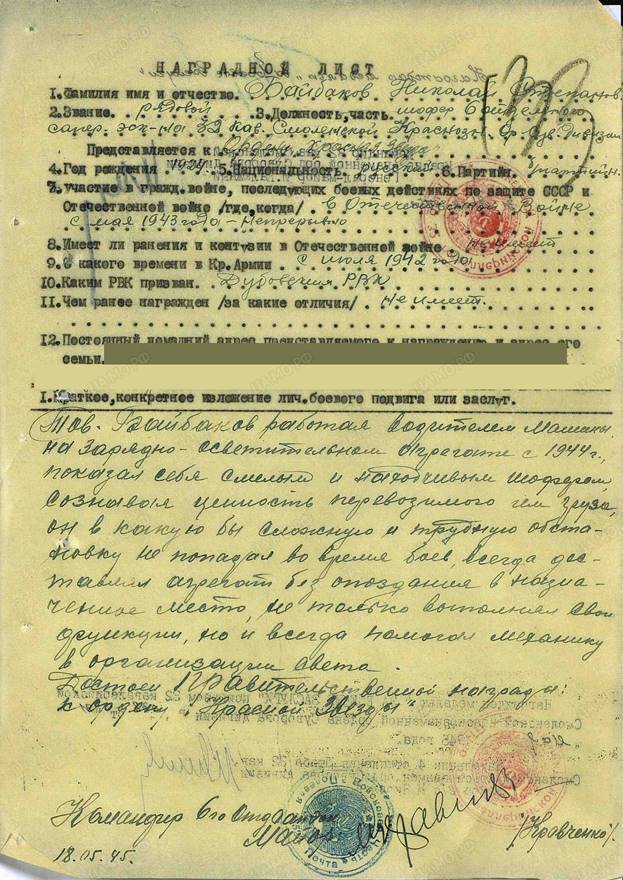 НАГРАДНОЙ ЛИСТ
1.Фамилия имя и отчество. Байбаков Николай Степанов.
2.Звание. рядовой 3.Должность,часть. шофер
сапер. эск-на 32 Кав. Смоленской Краснозн.
Представляется к ордену Красная Звезда
4.Год рождения 1924 5.Национальность русский 6.Партийн.
7.участие в гражд.войне, последующих боевых действиях по защите СССР и
Отечественной войне /где,когда/ в Отечественной Войне
с мая 1943 года – Непрерывно
8.Имеет ли ранения и контузии в Отечественной войне Не имеет
9.С какого времени в Кр.Армии с июля 1942 года
10.Каким РВК призван. Дубовским РВК
11.Чем ранее награжден /за какие отличия/ Не имеет.
12.Постоянный домашний адрес представляемого к награждению и адрес его
семьи.
1.Краткое,конкретное изложение лич.боевого подвига или заслуг.
Тов. Байбаков работая водителем машины
на зарядно-осветительном агрегате с 1944 г.,
показал себя смелым и находчивым шофером
сознавая ценность перевозимого им груза,
он в какую бы сложную и трудную обста-
новку не попадал во время боев, всегда дос-
тавлял агрегат без опоздания в назна-
ченное место, не только выполнял свои
функции, но и всегда помогал механику
в организации света.
Достоен Правительственной награды:
к ордену "Красной Звезды"
Командир
/Кравченко/.
18.05.45.